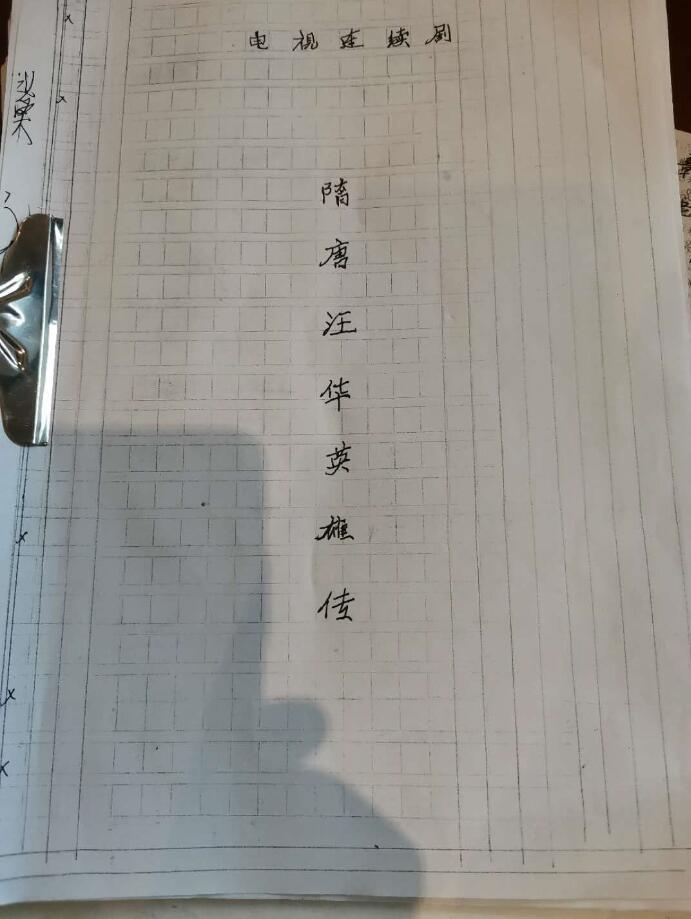 电视连续剧
隋唐汪华英雄传